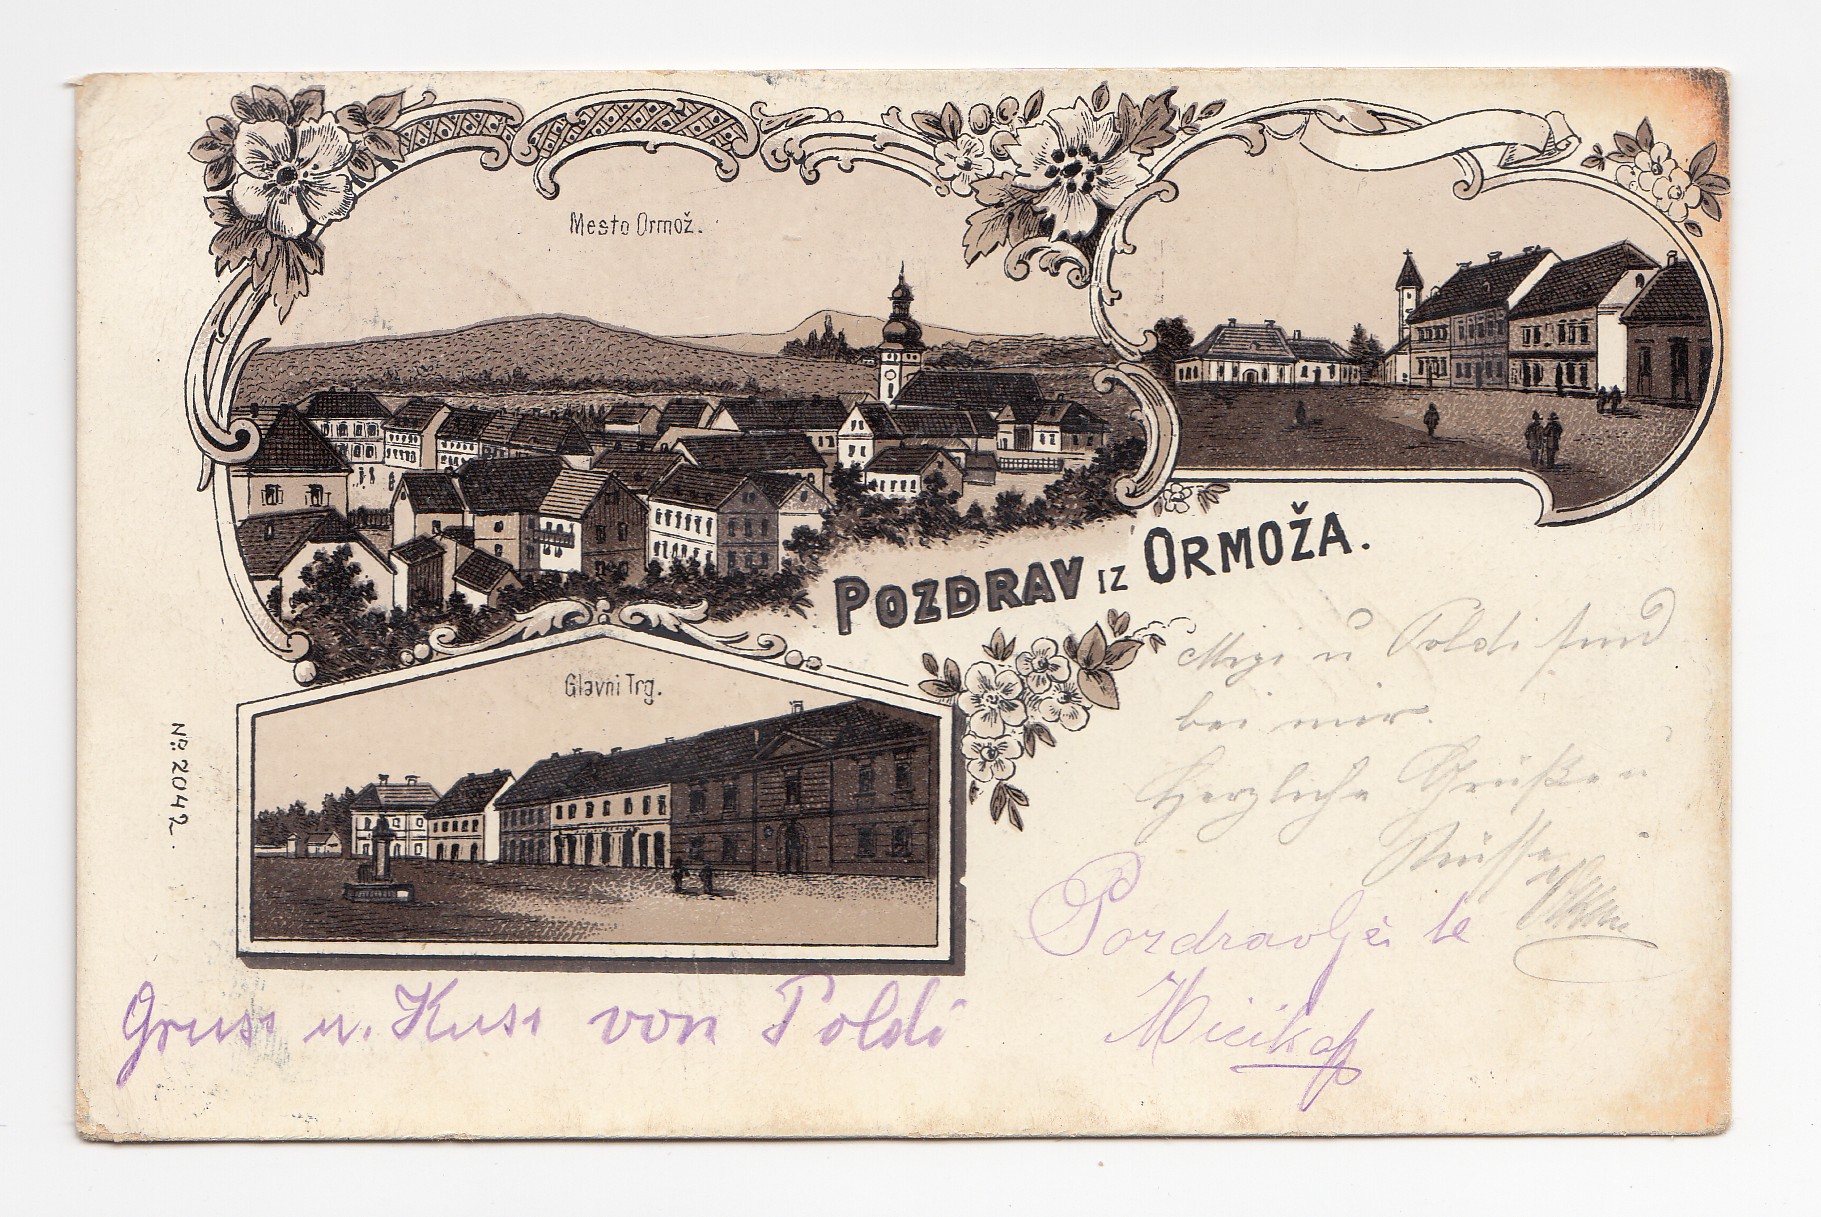 Mesto Ormož.
POZDRAV IZ ORMOŽA.
Glavni Trg.
No. 2042.
Mizi u Poldi sind
bei mir.
Herzliche Grüße u
Küsse
Pozdravlja te
Micika
Gruss u. Kuss von Poldi